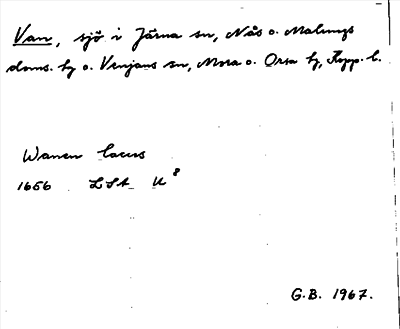 Van, sjö i Järna sn, Nås o. Malungs
doms. hg o. Venjans sn, Mora o. Orsa tg, Kopp. l.
Wanen lacus
1656 LSA U 8
G.B. 1967.